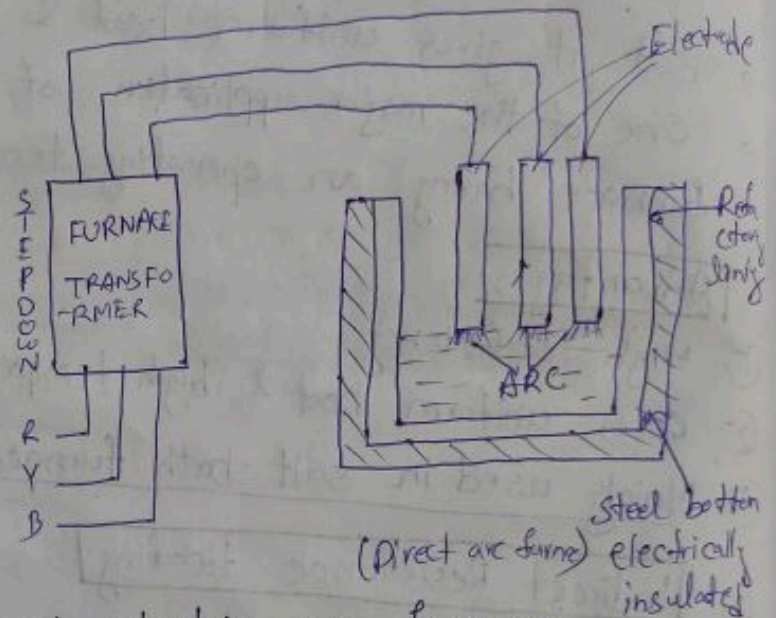 Electrode
STEPDOWN
FURNACE
TRANSFO
-RMER
R
Y
B
ARC
Steel botton
electrically
insulated
(Direct arc furne)